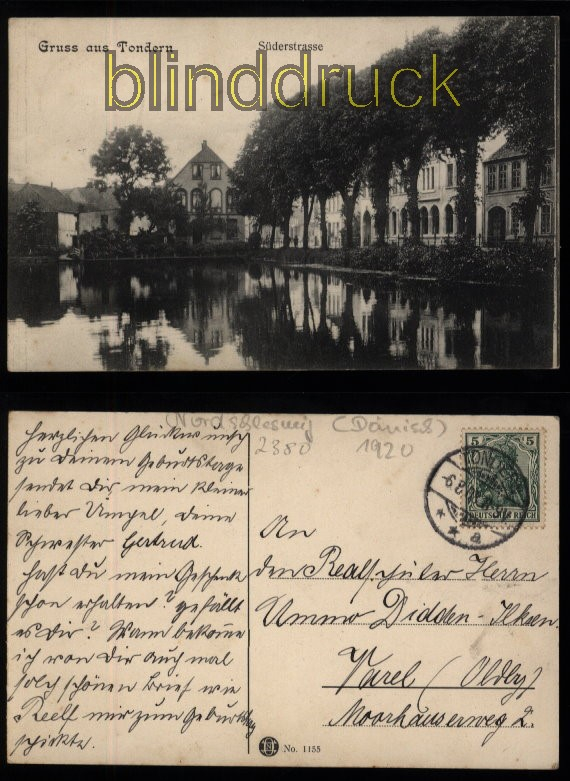 Gruss aus Tondern
Süderstrasse
blinddruck
(Nordschleswig (Dänisch)
2380 1920
Herzlichen Glückwunsch
zu Deinem Geburtstage
sendet Dir mein kleiner
lieber Deine
Schwester Gertrud.
Hast Du mein Geschenk
schon erhalten? gefällt
es Dir? Wann bekomme
ich von Dir auch mal
solch schönen Brief wie
Reelf mir zum Geburtstag
schickte.
5 5
DEUTSCHES REICH
TONDERN
* * a
An
den Realschüler Herrn
Ummo Didden-
Varel (Oldbg)
Moorhauserweg 2.
No. 1155